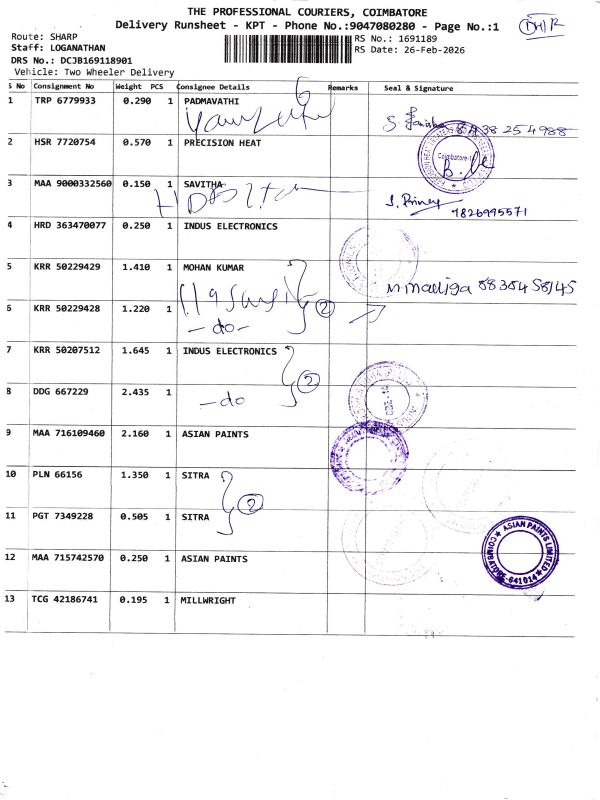 THE PROFESSIONAL COURIERS, COIMBATORE
Delivery Runsheet - KPT - Phone No.:9047080280 - Page No.:1
Route: SHARP
RS No.: 1691189
Staff: LOGANATHAN
RS Date: 26-Feb-2026
DRS No.: DCJB169118901
Vehicle: Two Wheeler Delivery
S No Consignment No Weight PCS Consignee Details Remarks Seal & Signature
1 TRP 6779933 0.290 1 PADMAVATHI
8438254988
2 HSR 7720754 0.570 1 PRECISION HEAT
Coimbatore-1
3 MAA 9000332560 0.150 1 SAVITHA
9826995571
4 HRD 363470077 0.250 1 INDUS ELECTRONICS
5 KRR 50229429 1.410 1 MOHAN KUMAR
2
6 KRR 50229428 1.220 1
-do-
7 KRR 50207512 1.645 1 INDUS ELECTRONICS
2
8 DDG 667229 2.435 1
-do
9 MAA 716109460 2.160 1 ASIAN PAINTS
10 PLN 66156 1.350 1 SITRA
2
11 PGT 7349228 0.505 1 SITRA
ASIAN PAINTS LIMITED
COIMBATORE-641014
12 MAA 715742570 0.250 1 ASIAN PAINTS
13 TCG 42186741 0.195 1 MILLWRIGHT